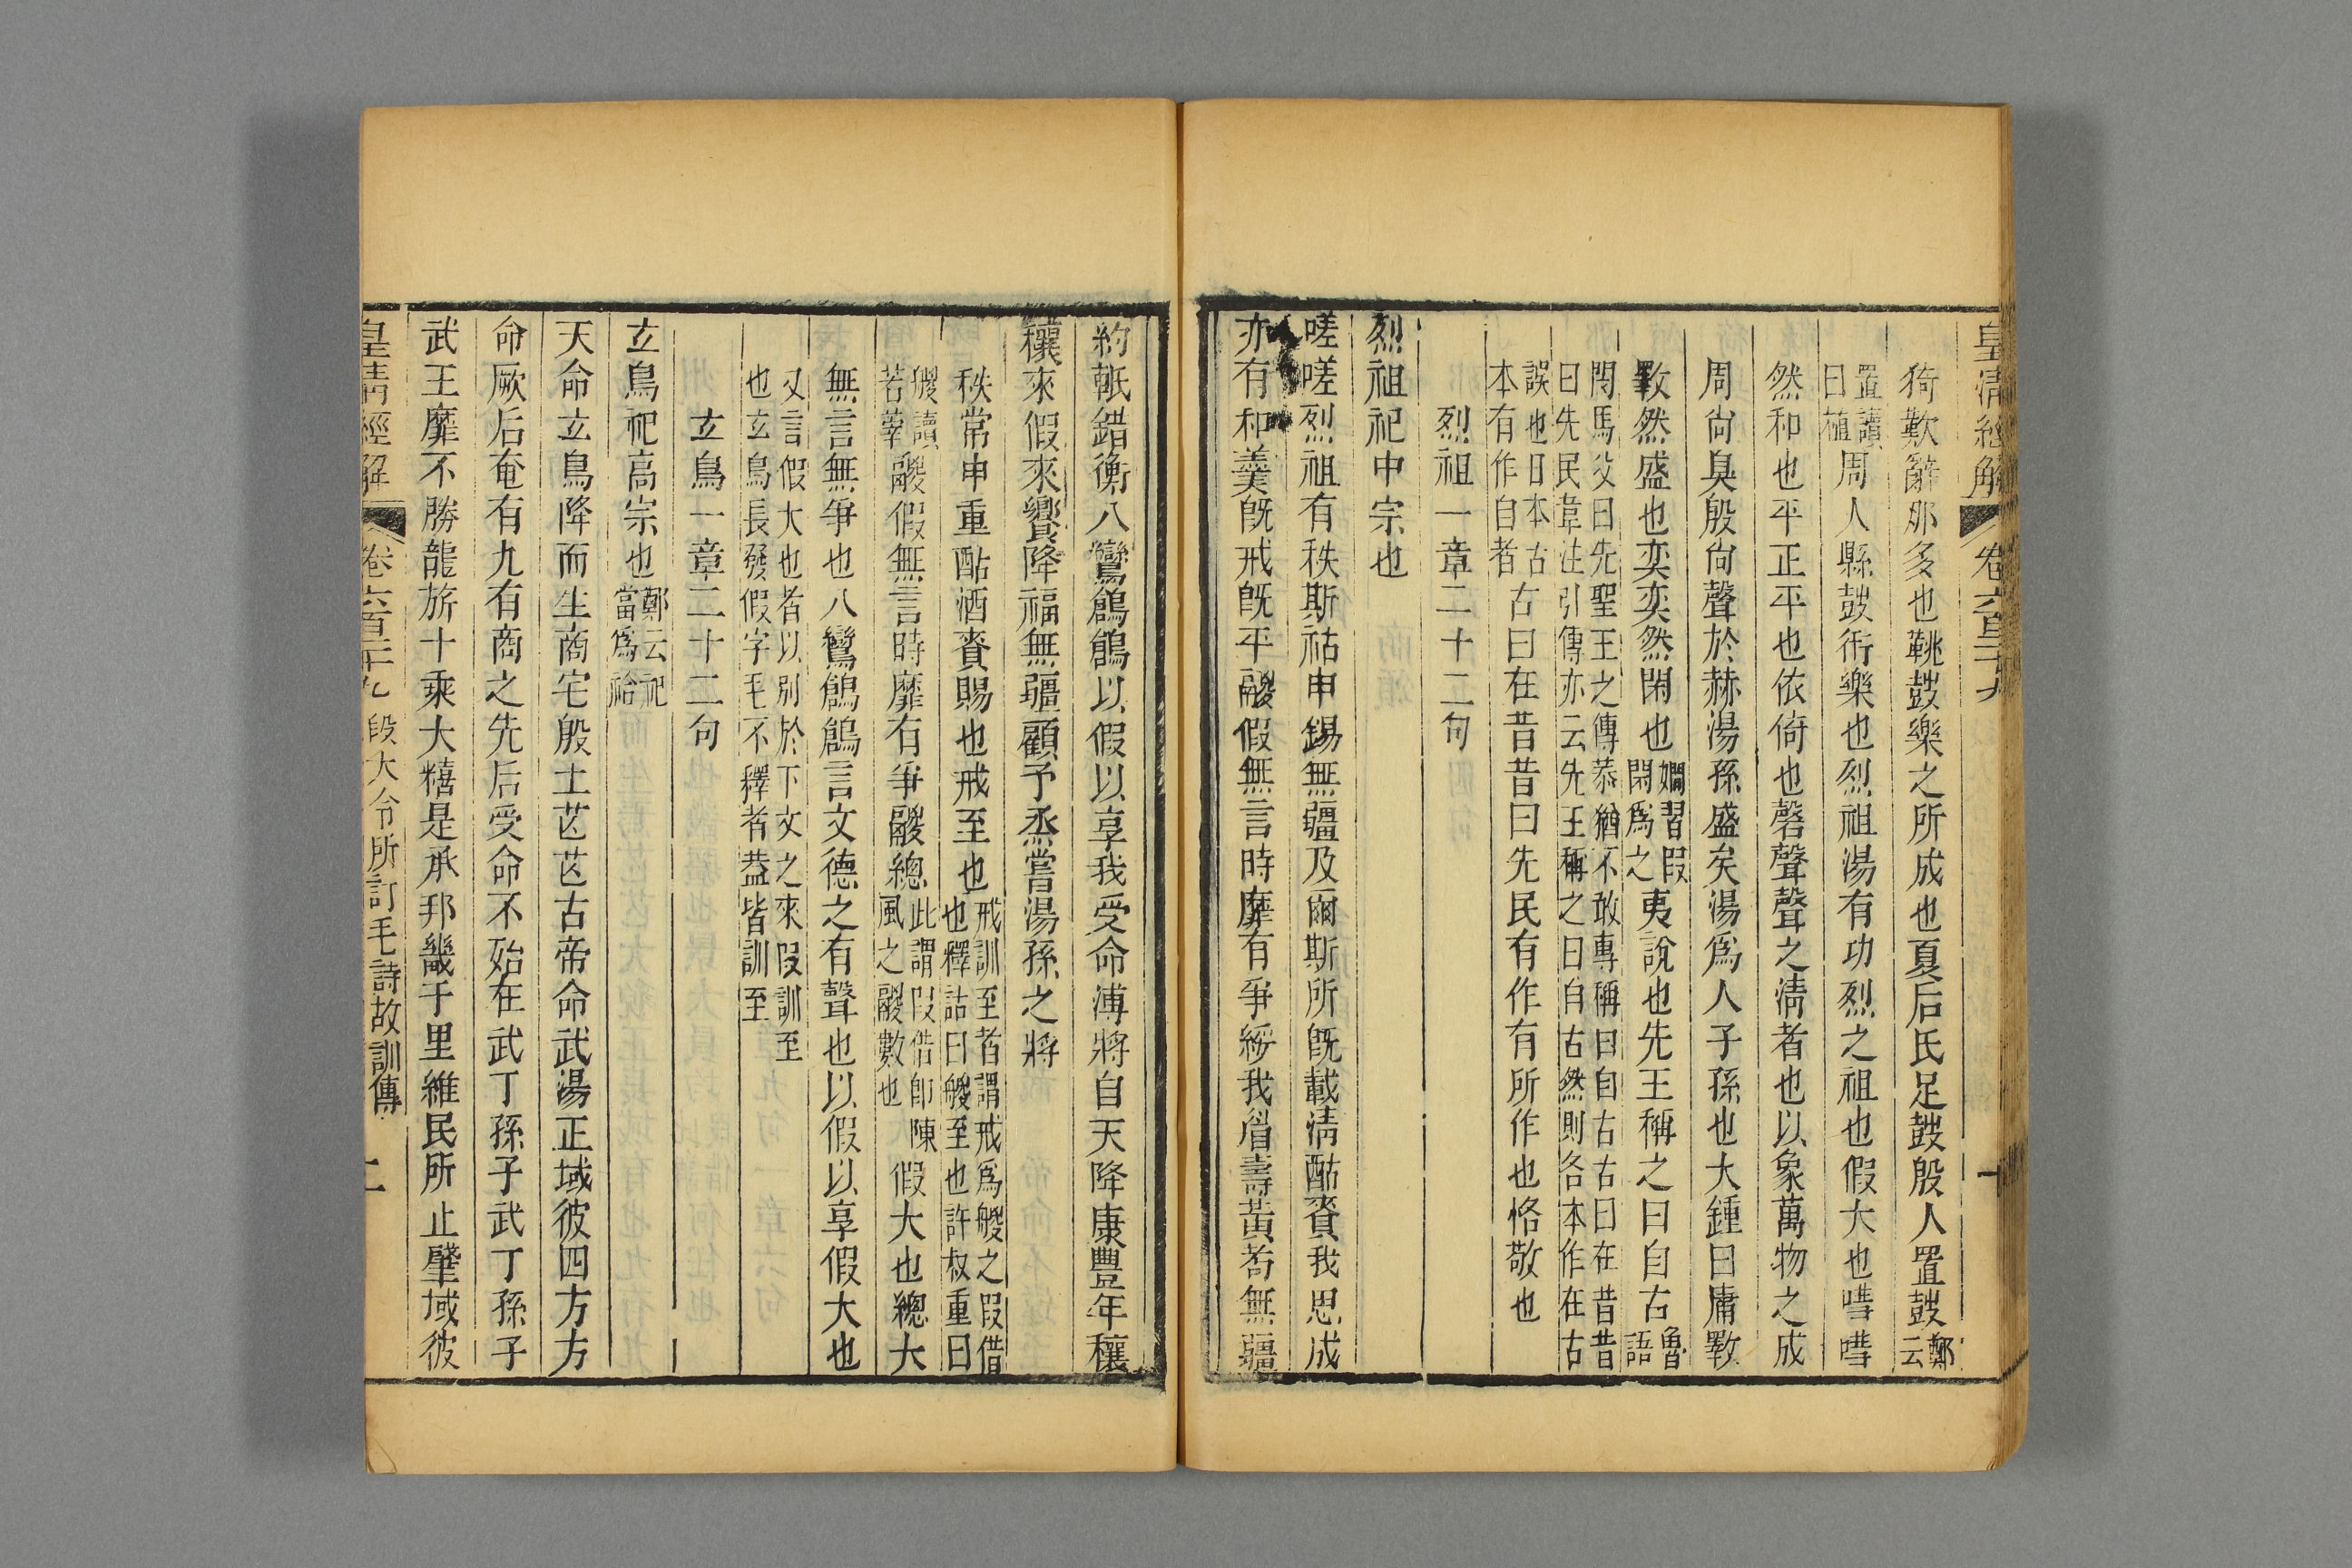 皇清經解 卷六百二十九 十
猗歎辭那多也鞉鼓樂之所成也夏后氏足鼓殷人置鼓鄭云
置讀曰植周人縣鼓衎樂也烈祖湯有功烈之祖也假大也嘒嘒
然和也平正平也依倚也磬聲聲之淸者也以象萬物之成
周尙臭殷尙聲於赫湯孫盛矣湯爲人子孫也大鍾曰庸斁
斁然盛也奕奕然閑也嫺習叚閑爲之夷說也先王稱之曰自古魯語
閔馬父曰先聖王之傳恭猶不敢專稱曰自古古曰在昔昔
曰先民韋注引傳亦云先王稱之曰自古然則各本作在古
誤也日本古本有作自者古曰在昔昔曰先民有作有所作也恪敬也
烈祖一章二十二句
烈祖祀中宗也
嗟嗟烈祖有秩斯祜申錫無疆及爾斯所旣載淸酤賚我思成
亦有和羹旣戒旣平鬷假無言時靡有爭綏我眉壽黃耇無疆
約軧錯衡八鸞鶬鶬以假以享我受命溥將自天降康豐年穰
穰來假來饗降福無疆顧予烝嘗湯孫之將
秩常申重酤酒賚賜也戒至也戒訓至者謂戒爲艐之叚借
也釋詁曰艐至也許叔重曰
艐讀若䔖鬷假無言時靡有爭鬷總此謂叚借卽陳風之鬷數也假大也總大
無言無爭也八鸞鶬鶬言文德之有聲也以假以享假大也
又言假大也者以別於下文之來假訓至
也玄鳥長發假字毛不釋者葢皆訓至
玄鳥一章二十二句
玄鳥祀高宗也鄭云祀當爲祫
天命玄鳥降而生商宅殷土芒芒古帝命武湯正域彼四方方
命厥后奄有九有商之先后受命不殆在武丁孫子武丁孫子
武王靡不勝龍旂十乘大糦是承邦畿千里維民所止肇域彼
皇清經解 卷六百二十九 段大令所訂毛詩故訓傳 二